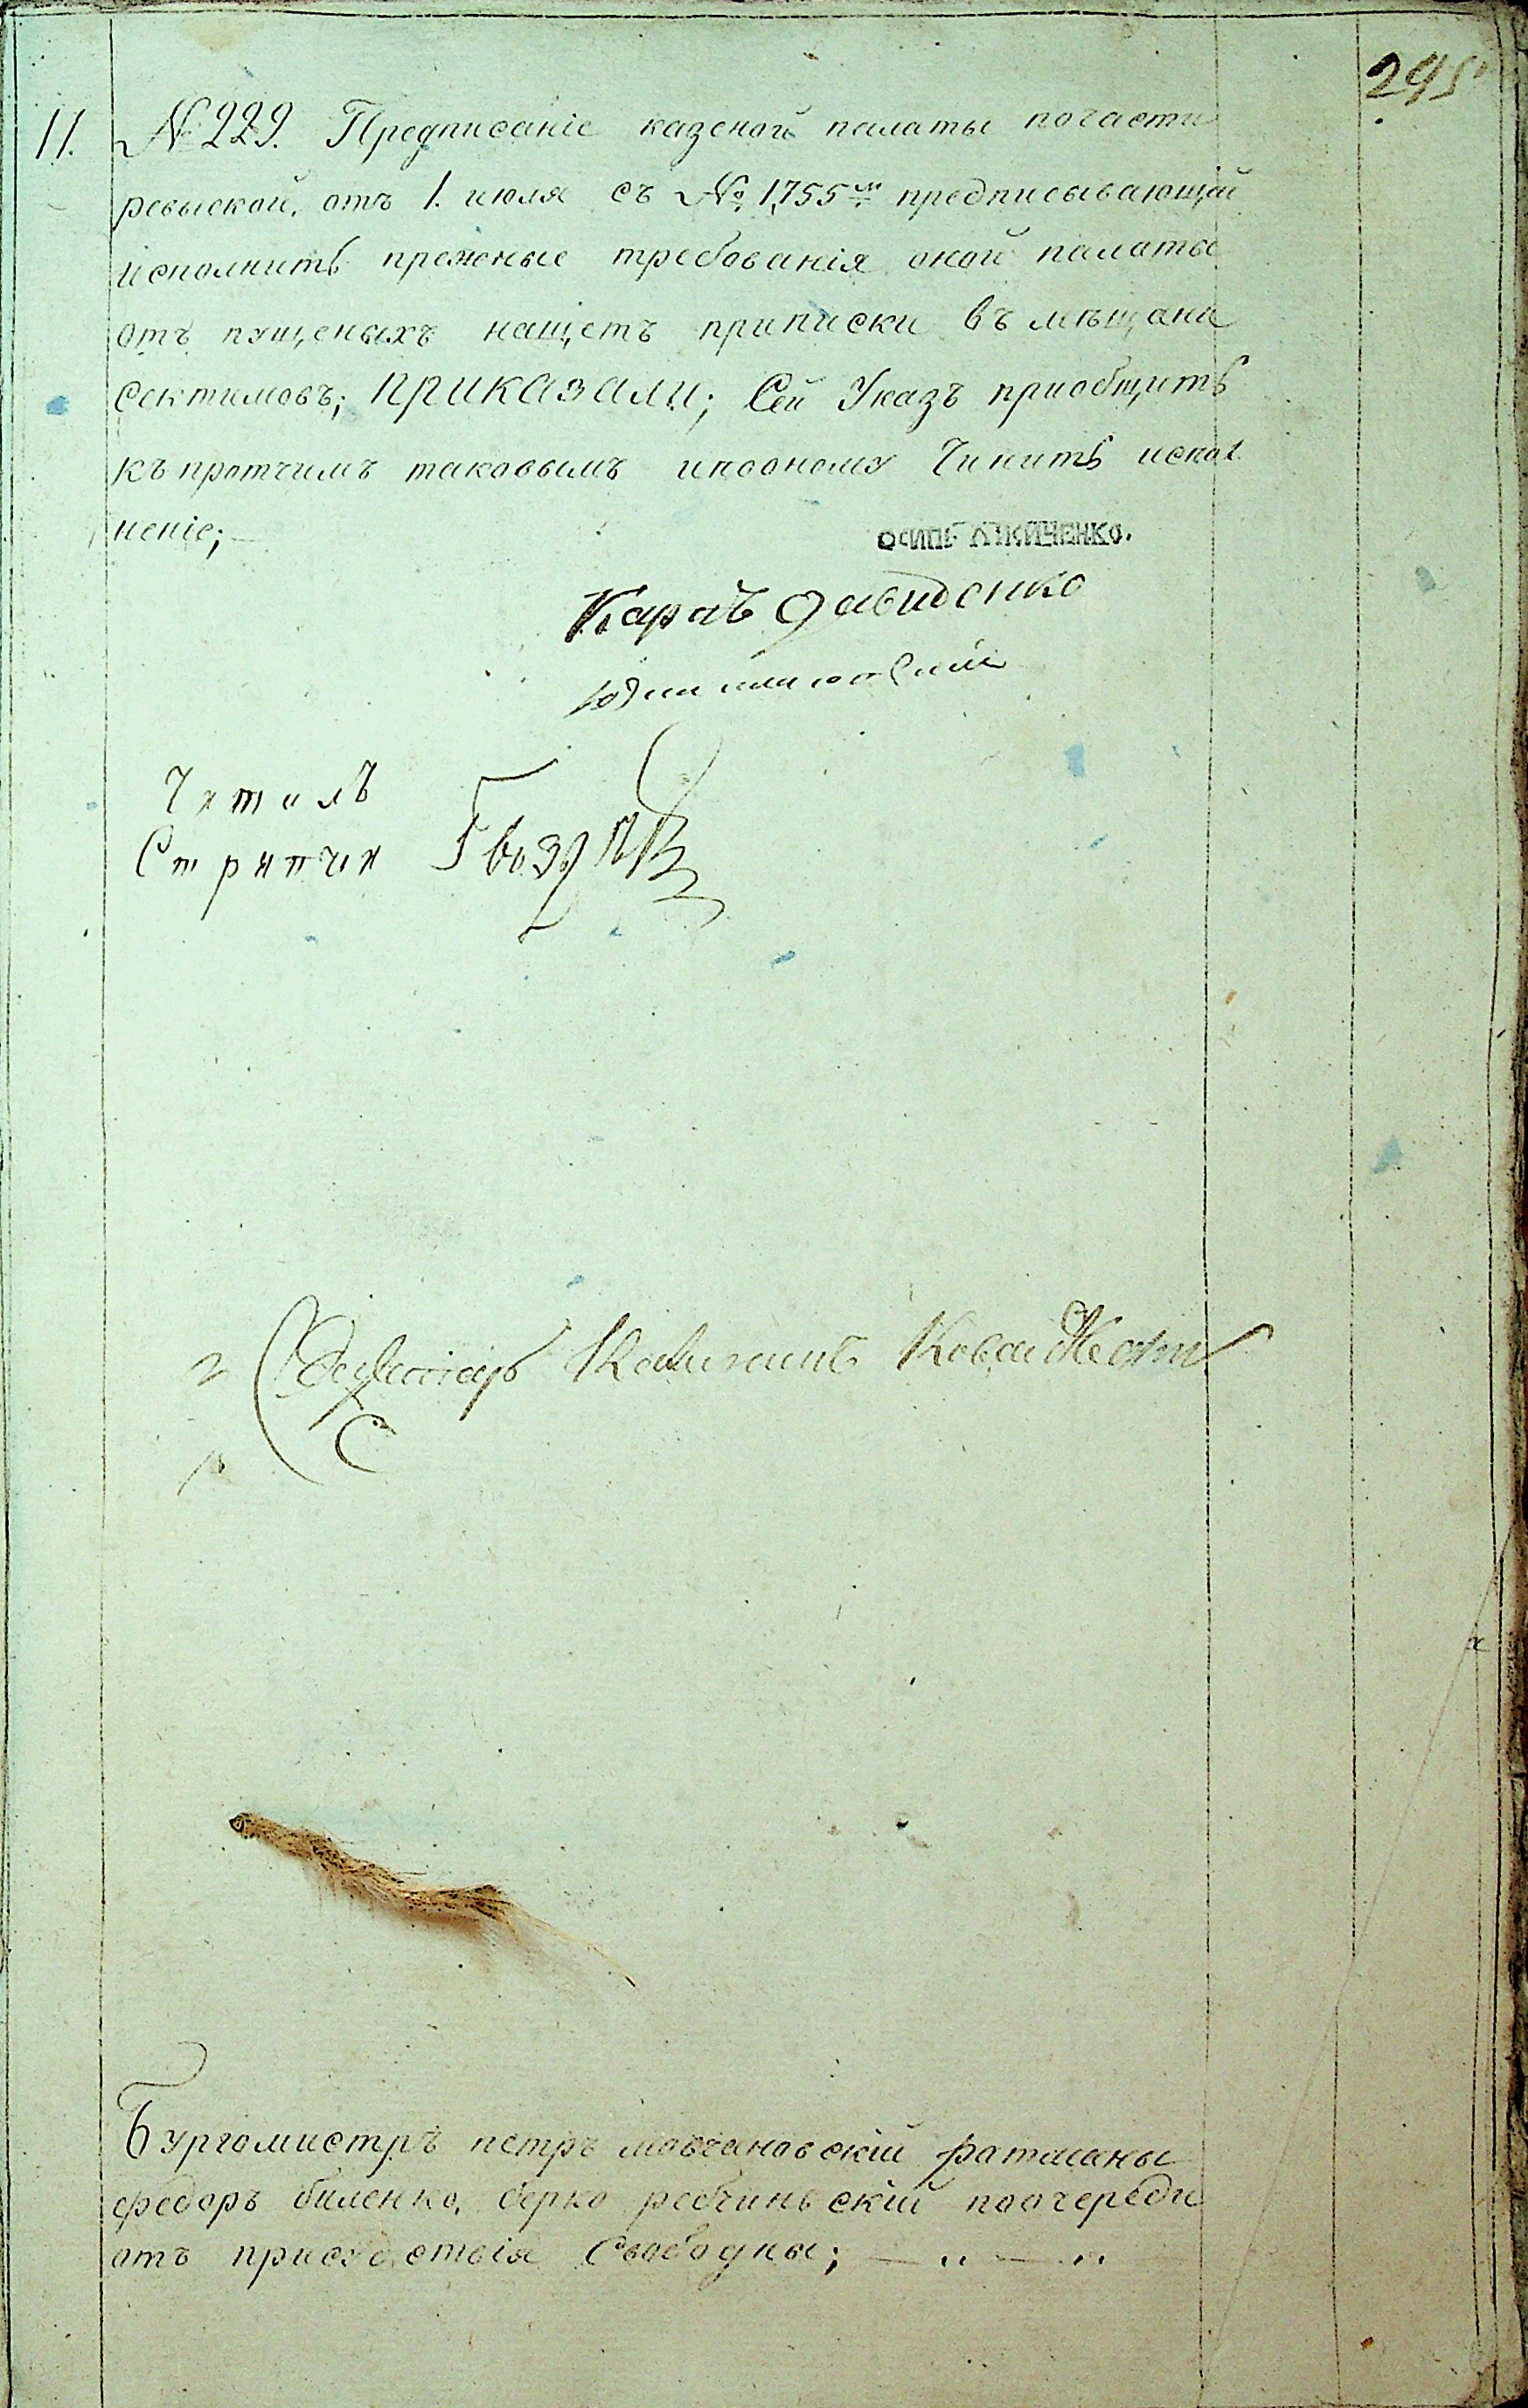 295
11. №229. Предписаніе казеной палаты почасти
ревыской, отъ 1. июля съ №1,755м предписывающій
исполнить прежные требованія оной палаты
отъ пущеныхъ нащетъ приписки въ мѣщани
сектимовъ; приказали; Сей Указъ приобщить
къ протчимъ таковымъ ипооному Чинить испол
неніе;
осипъ лукиченко.
Карпъ давиденко
Читалъ
Стряпчи Гвозд
Секретарь Ковал
Бургомистръ петръ мовчановскій ратманы
федоръ биленко, берко ребчиньскій поочереди
отъ присудствія Свободны;